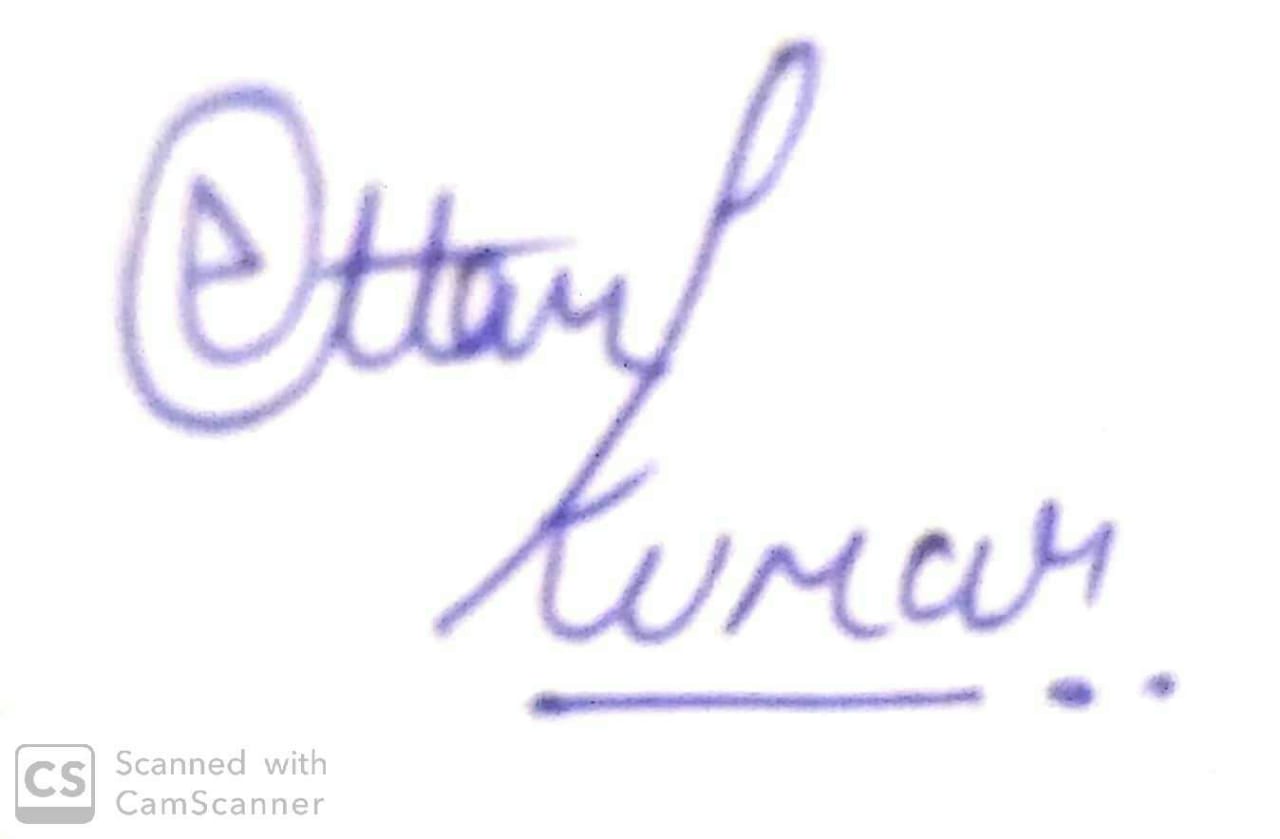 Kumar
CS Scanned with
CamScanner